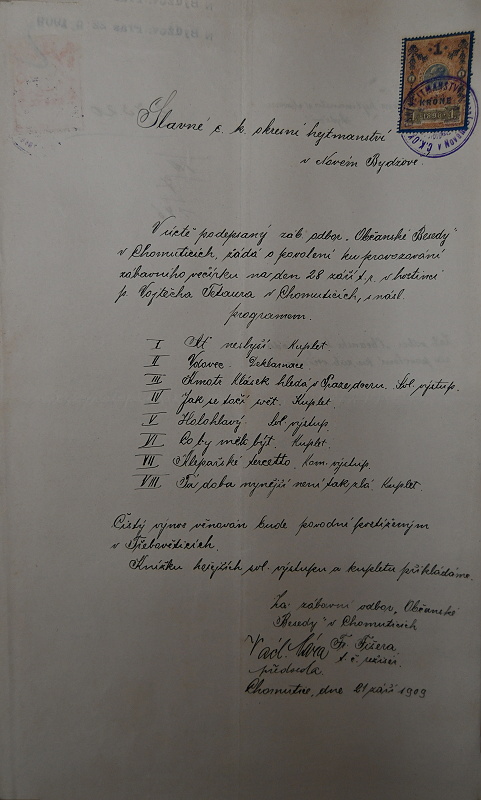 Slavné c. k. okresní hejtmanství
v Novém Bydžově.
V úctě podepsaný záb. odbor „Občanské Besedy"
v Chomuticích, žádá o povolení ku provozování
zábavního večírku na den 28 září t. r. v hostinci
p. Vojtěcha Tetaura v Chomuticích, s násl.
programem.
I Ať neslyší. Kuplet.
II Vdovec. Deklamace.
III Kmotr Klásek hledá v Praze dceru. Sol. výstup.
IV Jak se točí svět. Kuplet.
V Holohlavý. Sol. výstup.
VI Co by měk být. Kuplet.
VII Klepařské tercetto. Kom. výstup.
VIII Tá doba nynější není tak zlá. Kuplet.
Čistý výnos věnován bude povodní postiženým
v Třebověticích.
Knížku hořejších sol. výstupů a kupletů přikládáme.
Za zábavní odbor „Občanské
Besedy" v Chomuticích
Fr. Fišera
t. č. režisér.
předseda.
Chomutice, dne 21 září 1909
1
1898